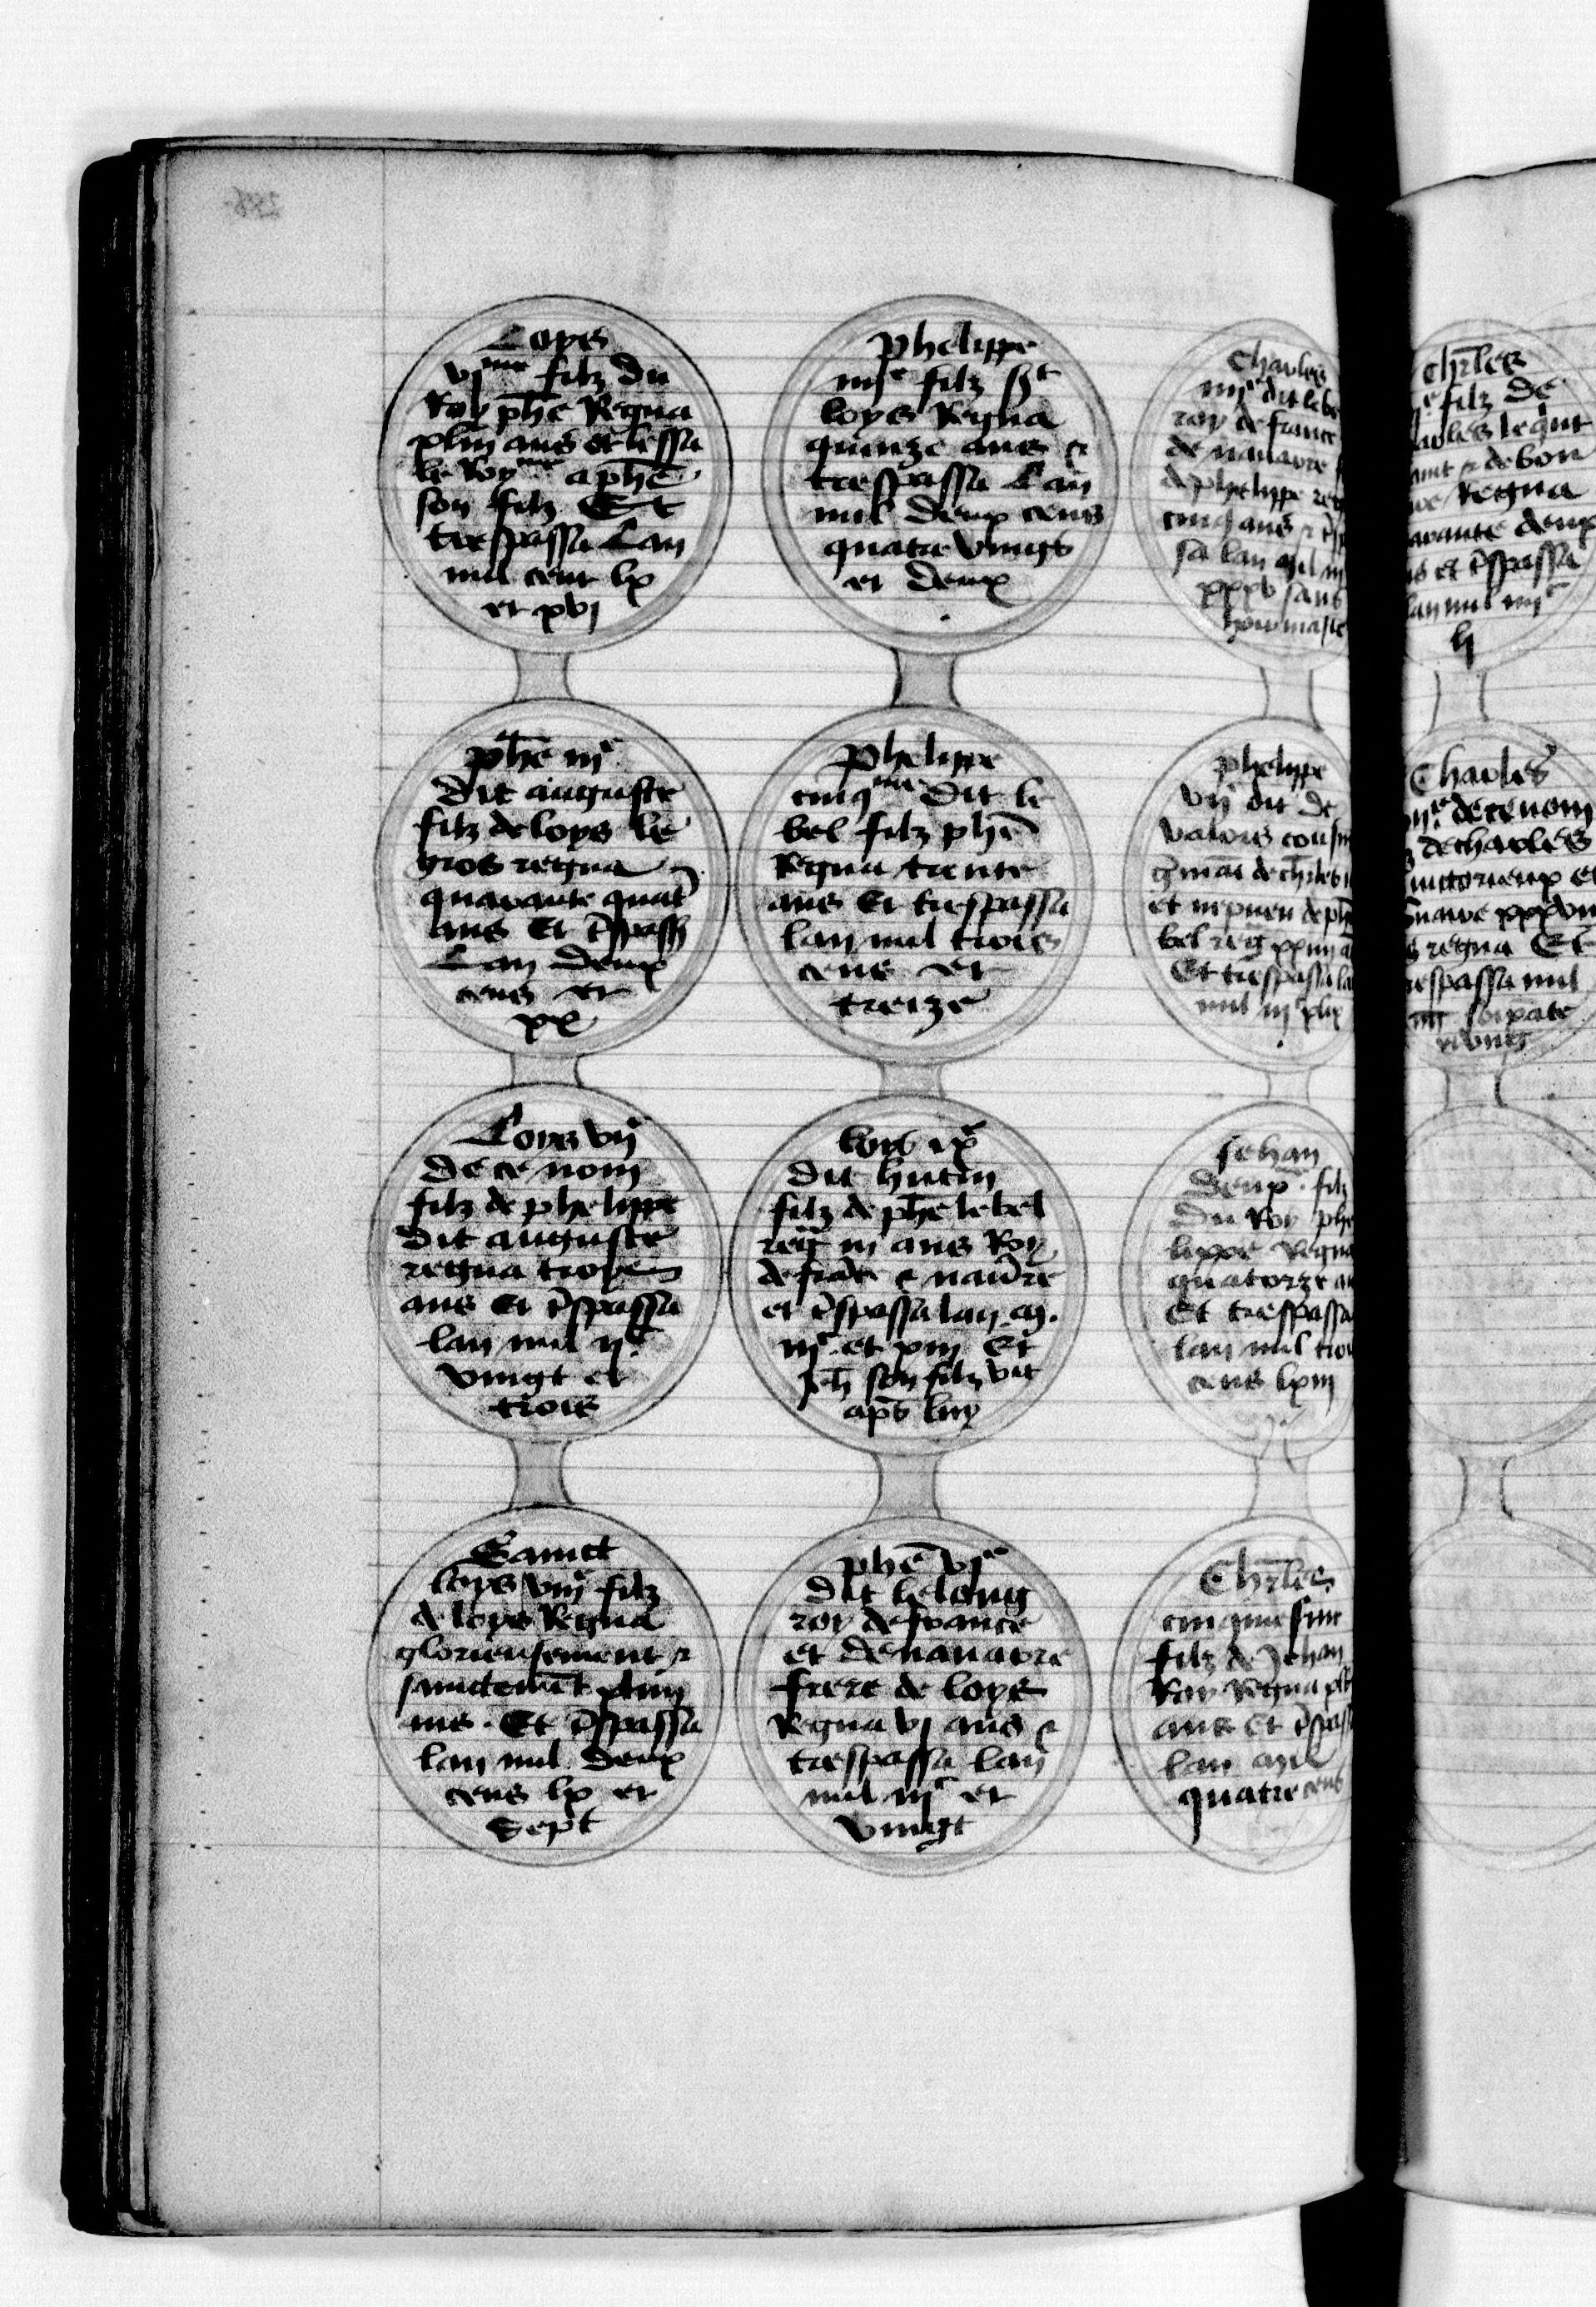 Loys
vjme filz du
Roy phē Regna
xliij ans et lessa
le Royme a phē
son filz Et
trespassa Lan
mil cent lx
et xvj
phē iije
dit auguste
filz de loys le
gros regna
quarante quat̄
ans Et t̄spassa
Lan deux
cens et
xx
Loys vije
de ce nom
filz de phelippe
dit auguste
regna troys
ans Et t̄spassa
lan mil ijc
vingt et
trois
Sainct
loys viije filz
de loys Regna
glorieusement &
sainctemēt xliiij
ans. Et t̄spassa
lan mil deux
cens lx et
sept
Phelippe
iiije filz st
loys Regna
quinze ans &
trespassa Lan
mil deux cens
quatre vingts
et deux
Phelippe
cinqme dit le
bel filz phē
Regna trente
ans Et trespassa
lan mil trois
cens et
treize
loys ixe
dit hutin
filz de phē le bel
reḡ iij ans Roy
de frāce & nauāre
et t̄spassa lan m.
iijc et xiij Et
Jeh̄ son filz vit
aps̄ luy
phē vje
dit le long
roy de france
et de nauarre
frere de loys
Regna vj ans &
trespassa lan
mil iijc et
vingt
Charles
iiije dit le be
roy de france
de nauarre
de phelippe reg
cinq ans & t̄sp
sa lan mil iij
xxxv sans
hoir masle
phelippe
vije dit de
valois cousin
ḡmai de chr̄les
et nepueu de ph
bel reḡ xxiij a
Et trespassa la
mil iijc xlix
Jehan
deuxe. filz
du Roy phe
lippe Regna
quatorze an
Et trespassa
lan mil troi
cens lxiij
Chr̄les
cinquiesme
filz de Jehan
Roy Regna
ans Et t̄spass
lan mil
quatre cens
Chr̄les
filz de
arles le quit
ant & de bon
Regna
arante deux
ns et t̄spassa
lan mil iiijc
lj
Charles
de ce nom
de charles
uictorieux et
xxxviij
s regna Et
trespassa mil
soixāte
vingt